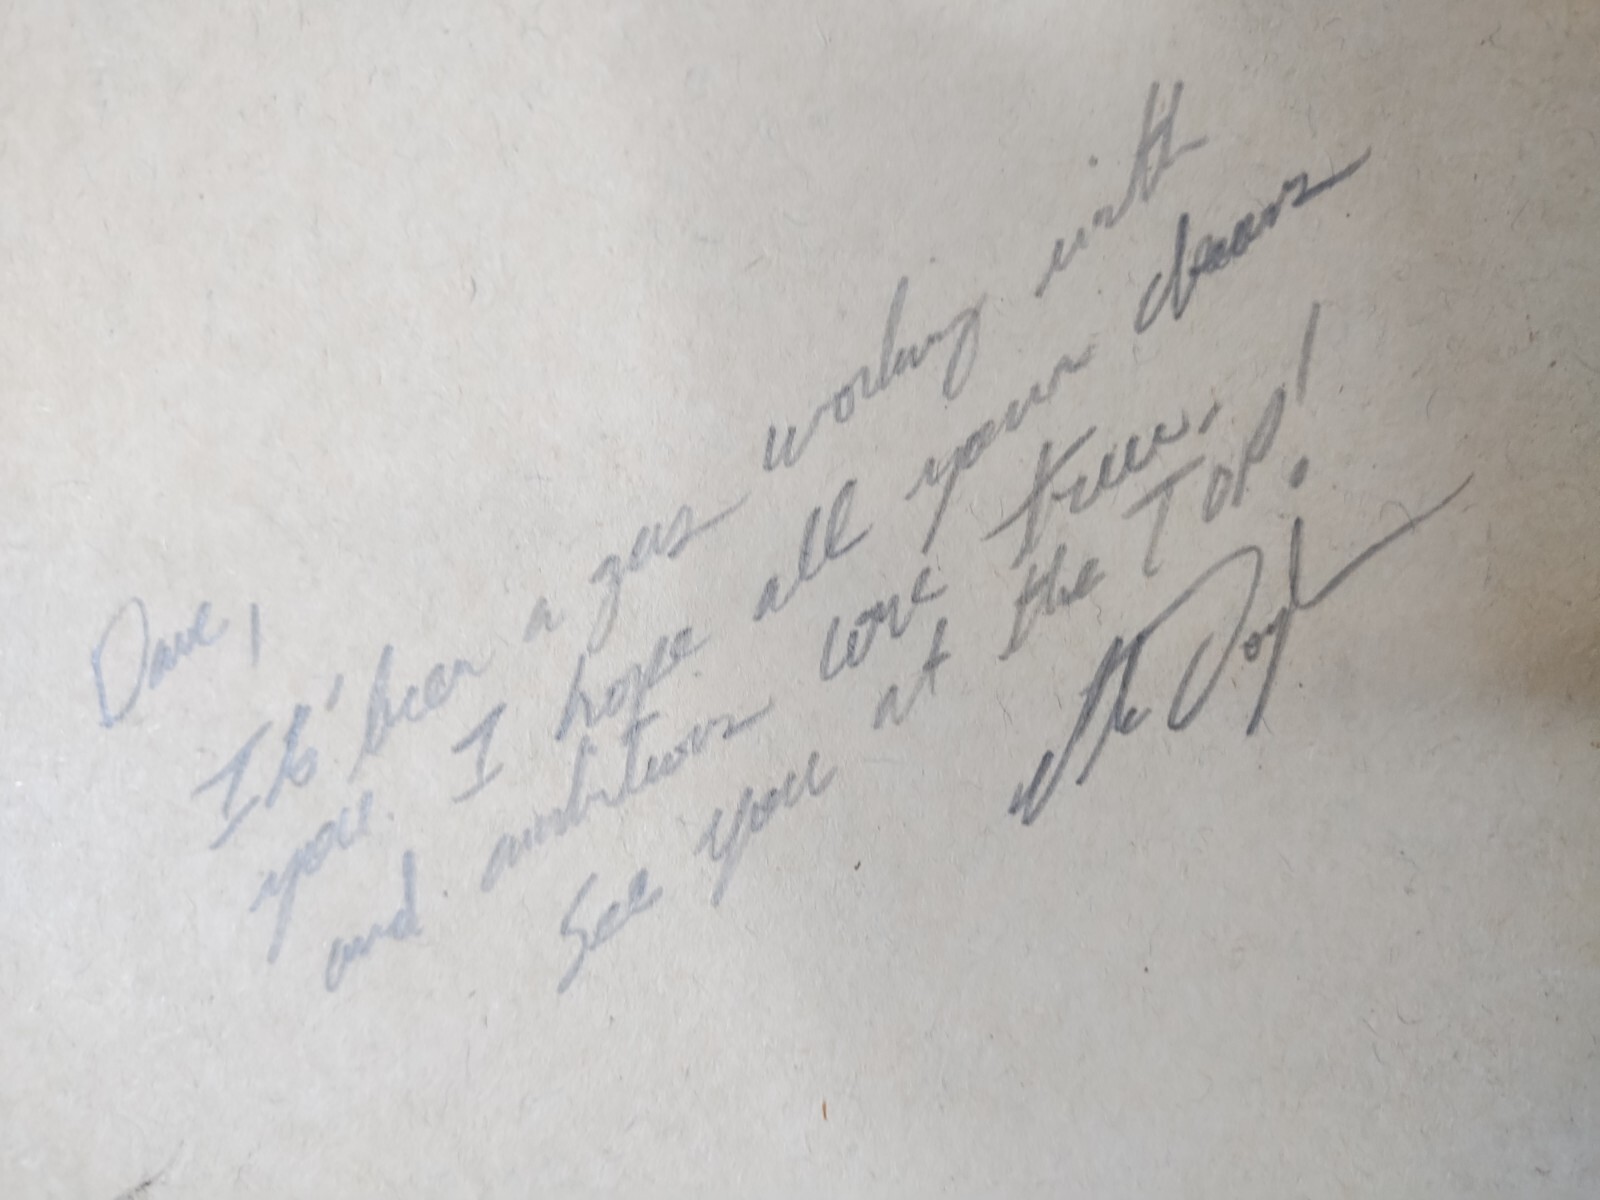 Dave,
It's been a gas working with
you. I hope all your dreams
and ambitions come true.
See you at the TOP!
Doyle